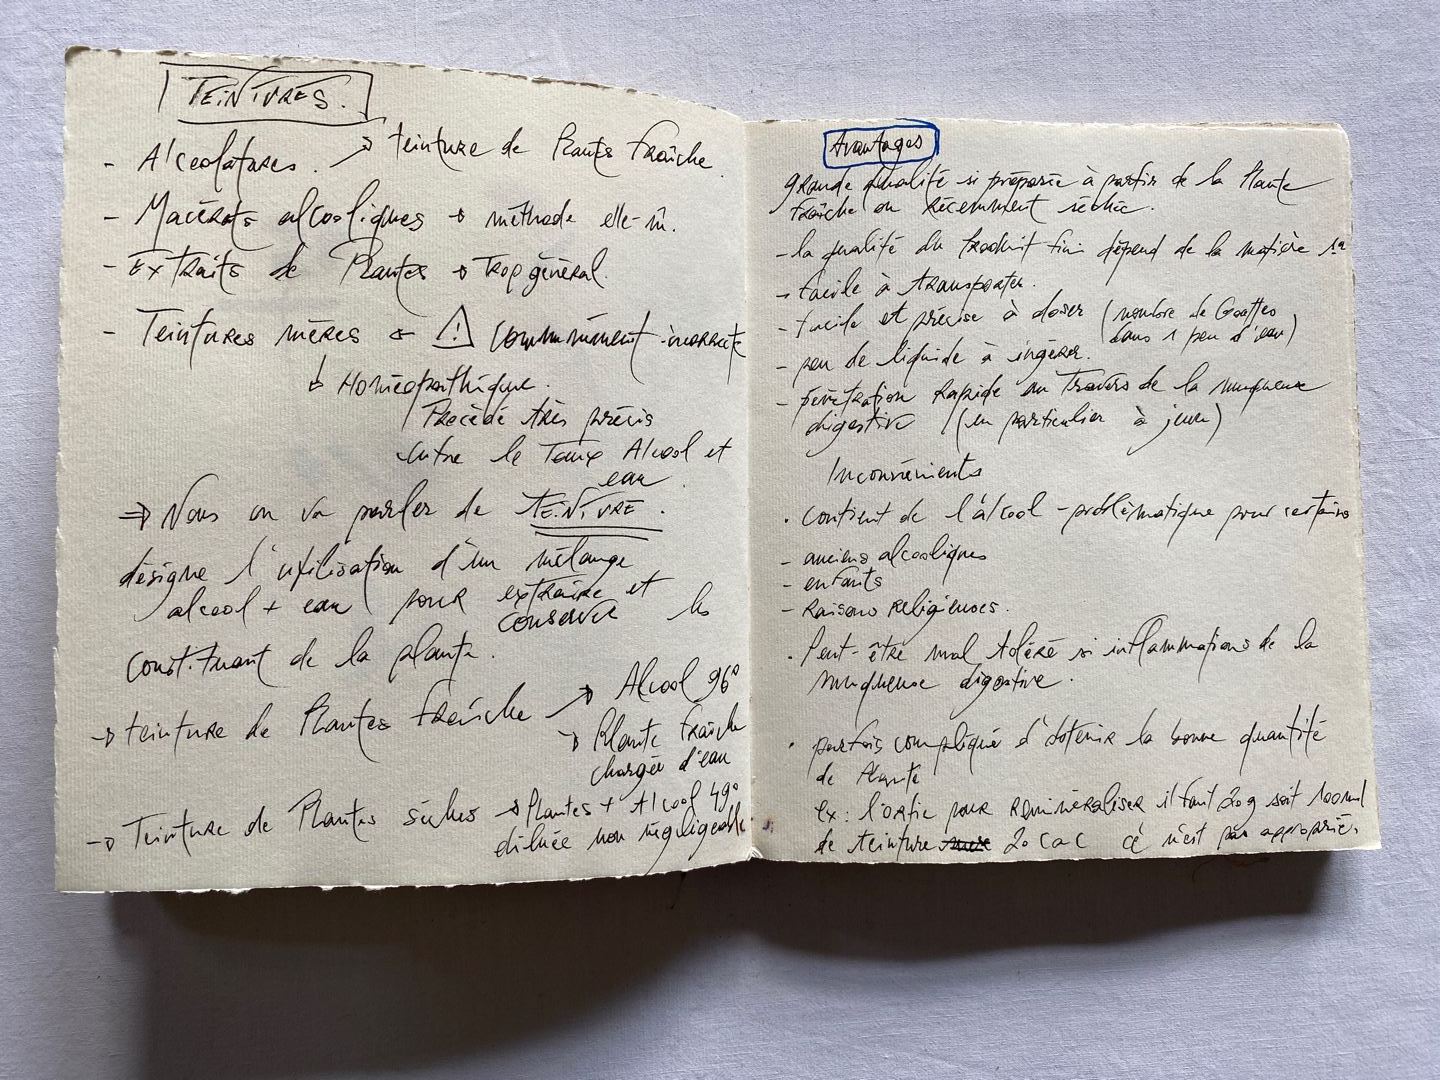 TEINTURES.
- Alcoolatures. → teinture de Plantes fraîche.
- Macérats alcooliques → méthode elle-m.
- Extraits de Plantes → Trop général.
- Teintures mères ← ⚠ communément incorrecte
↳ Homéopathique.
Procédé très précis
entre le Taux Alcool et
eau
⇒ Nous on va parler de TEINTURE.
désigne l'utilisation d'un mélange
alcool + eau pour extraire et
conserver les
constituant de la plante.
→ teinture de Plantes fraîche → Alcool 96°
→ Plante fraîche
chargée d'eau
→ Teinture de Plantes sèches → Plantes + Alcool 49°
diluée non négligeable
Avantages
grande qualité si préparée à partir de la Plante
fraîche ou récemment séchée.
- la qualité du produit fini dépend de la matière 1ère
- facile à transporter.
- facile et précise à doser (nombre de Gouttes
dans 1 peu d'eau)
- peu de liquide à ingérer.
- pénétration rapide au travers de la muqueuse
digestive (en particulier à jeun)
Inconvénients
. contient de l'alcool - problématique pour certains
- anciens alcooliques
- enfants
- Raisons religieuses.
. Peut-être mal toléré si inflammations de la
muqueuse digestive.
. parfois compliqué d'obtenir la bonne quantité
de Plante
ex: l'ortie pour reminéraliser il faut 20g soit 100ml
de teinture 20 CàC cé n'est pas approprié.